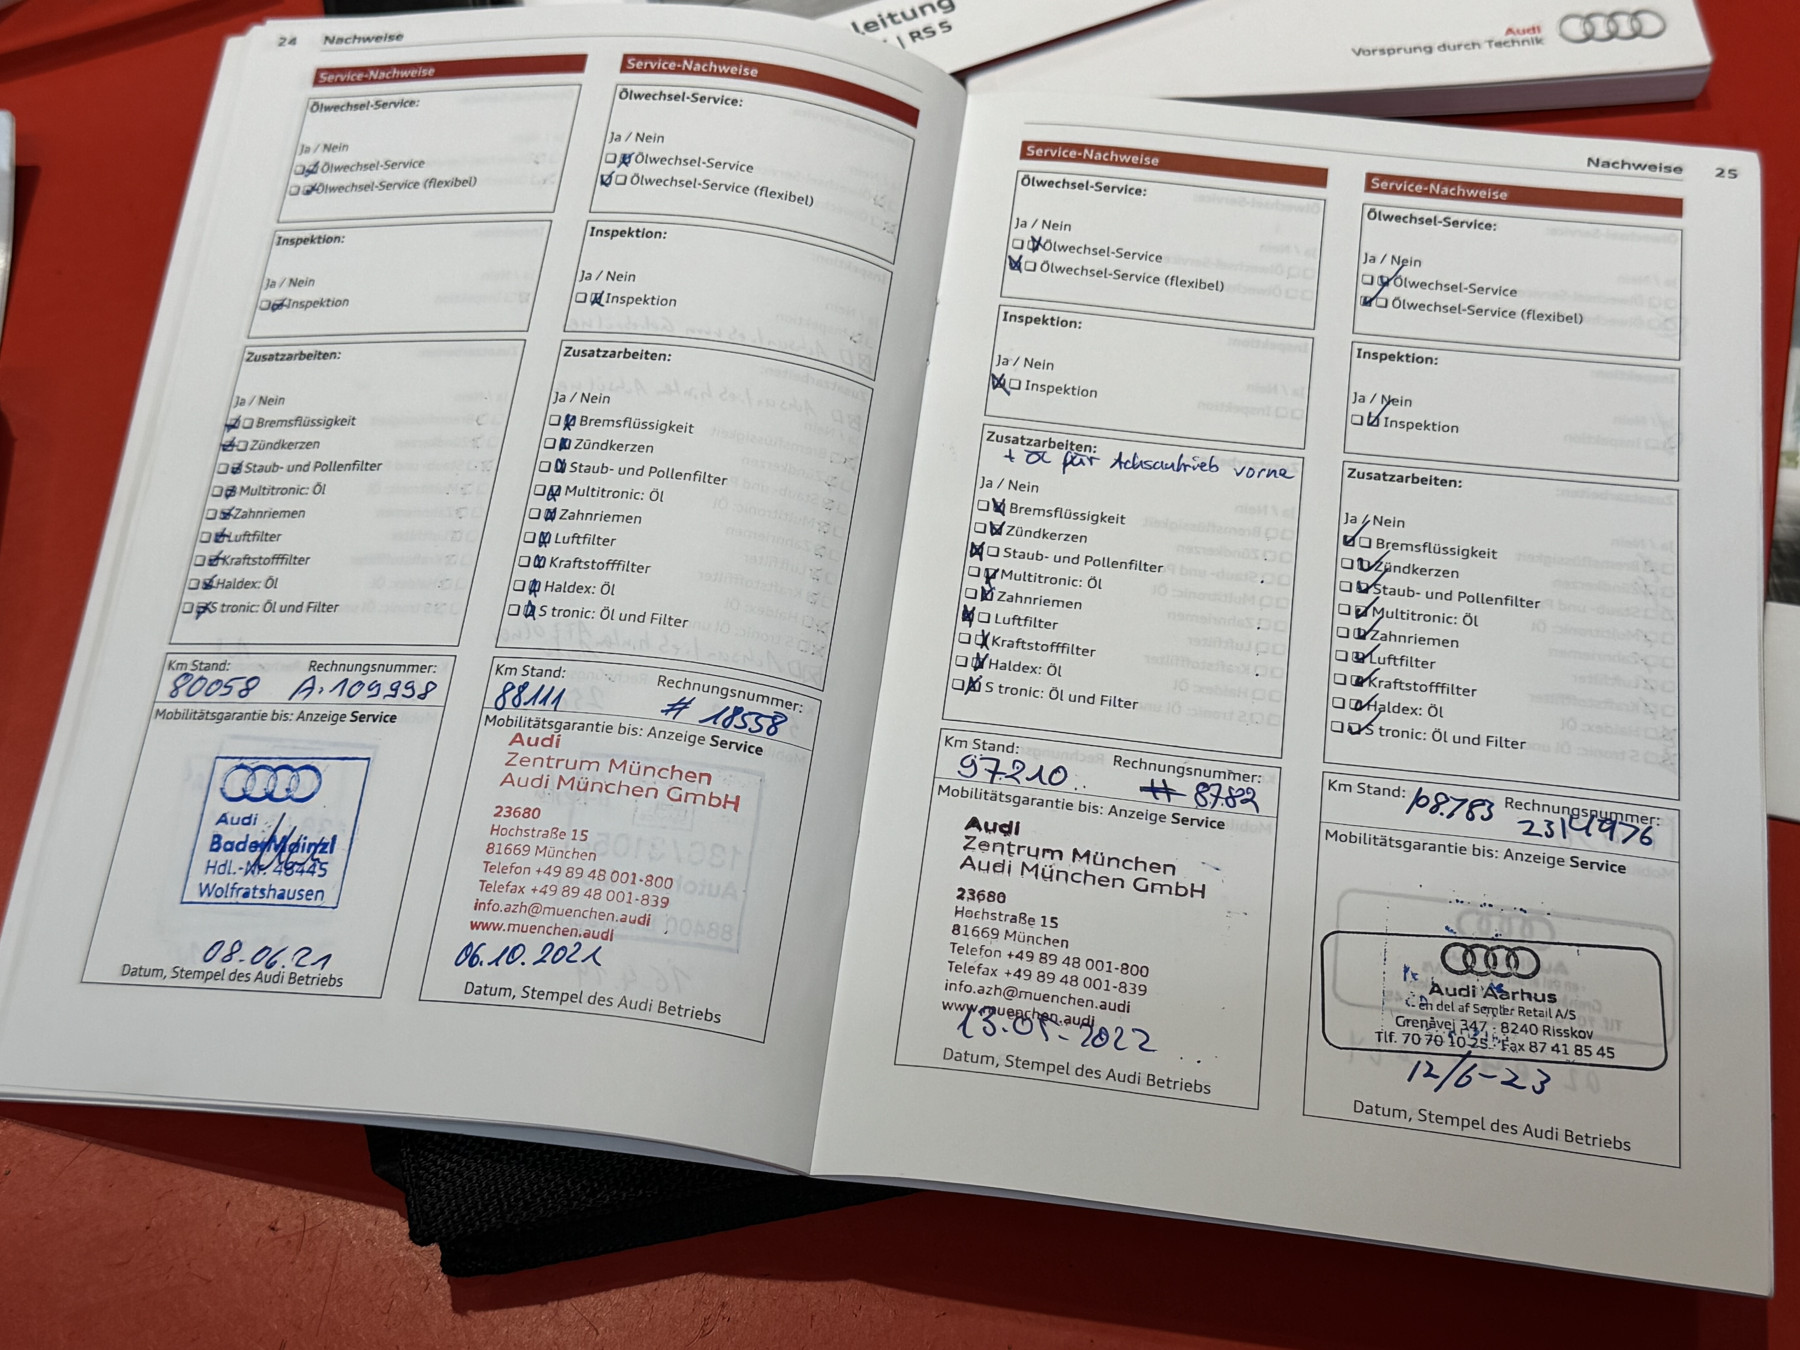 leitung
| RS 5
Audi
Vorsprung durch Technik
24 Nachweise
Service-Nachweise
Ölwechsel-Service:
Ja / Nein
Ölwechsel-Service
Ölwechsel-Service (flexibel)
Inspektion:
Ja / Nein
Inspektion
Zusatzarbeiten:
Ja / Nein
Bremsflüssigkeit
Zündkerzen
Staub- und Pollenfilter
Multitronic: Öl
Zahnriemen
Luftfilter
Kraftstofffilter
Haldex: Öl
S tronic: Öl und Filter
Km Stand: Rechnungsnummer:
80058 A.109998
Mobilitätsgarantie bis: Anzeige Service
Audi
BaderMainzl
Hdl.-Nr. 48445
Wolfratshausen
08.06.21
Datum, Stempel des Audi Betriebs
Service-Nachweise
Ölwechsel-Service:
Ja / Nein
Ölwechsel-Service
Ölwechsel-Service (flexibel)
Inspektion:
Ja / Nein
Inspektion
Zusatzarbeiten:
Ja / Nein
Bremsflüssigkeit
Zündkerzen
Staub- und Pollenfilter
Multitronic: Öl
Zahnriemen
Luftfilter
Kraftstofffilter
Haldex: Öl
S tronic: Öl und Filter
Km Stand: Rechnungsnummer:
88111 # 18558
Mobilitätsgarantie bis: Anzeige Service
Audi
Zentrum München
Audi München GmbH
23680
Hochstraße 15
81669 München
Telefon +49 89 48 001-800
Telefax +49 89 48 001-839
info.azh@muenchen.audi
www.muenchen.audi
06.10.2021
Datum, Stempel des Audi Betriebs
Nachweise 25
Service-Nachweise
Ölwechsel-Service:
Ja / Nein
Ölwechsel-Service
Ölwechsel-Service (flexibel)
Inspektion:
Ja / Nein
Inspektion
Zusatzarbeiten:
+ Öl für Achsantrieb vorne
Ja / Nein
Bremsflüssigkeit
Zündkerzen
Staub- und Pollenfilter
Multitronic: Öl
Zahnriemen
Luftfilter
Kraftstofffilter
Haldex: Öl
S tronic: Öl und Filter
Km Stand: Rechnungsnummer:
97210 # 8782
Mobilitätsgarantie bis: Anzeige Service
Audi
Zentrum München
Audi München GmbH
23680
Hochstraße 15
81669 München
Telefon +49 89 48 001-800
Telefax +49 89 48 001-839
info.azh@muenchen.audi
www.muenchen.audi
13.05.2022
Datum, Stempel des Audi Betriebs
Service-Nachweise
Ölwechsel-Service:
Ja / Nein
Ölwechsel-Service
Ölwechsel-Service (flexibel)
Inspektion:
Ja / Nein
Inspektion
Zusatzarbeiten:
Ja / Nein
Bremsflüssigkeit
Zündkerzen
Staub- und Pollenfilter
Multitronic: Öl
Zahnriemen
Luftfilter
Kraftstofffilter
Haldex: Öl
S tronic: Öl und Filter
Km Stand: 108.783 Rechnungsnummer:
2314976
Mobilitätsgarantie bis: Anzeige Service
Audi Aarhus
en del af Semler Retail A/S
Grenåvej 347 · 8240 Risskov
Tlf. 70 70 10 25 · Fax 87 41 85 45
12/6-23
Datum, Stempel des Audi Betriebs